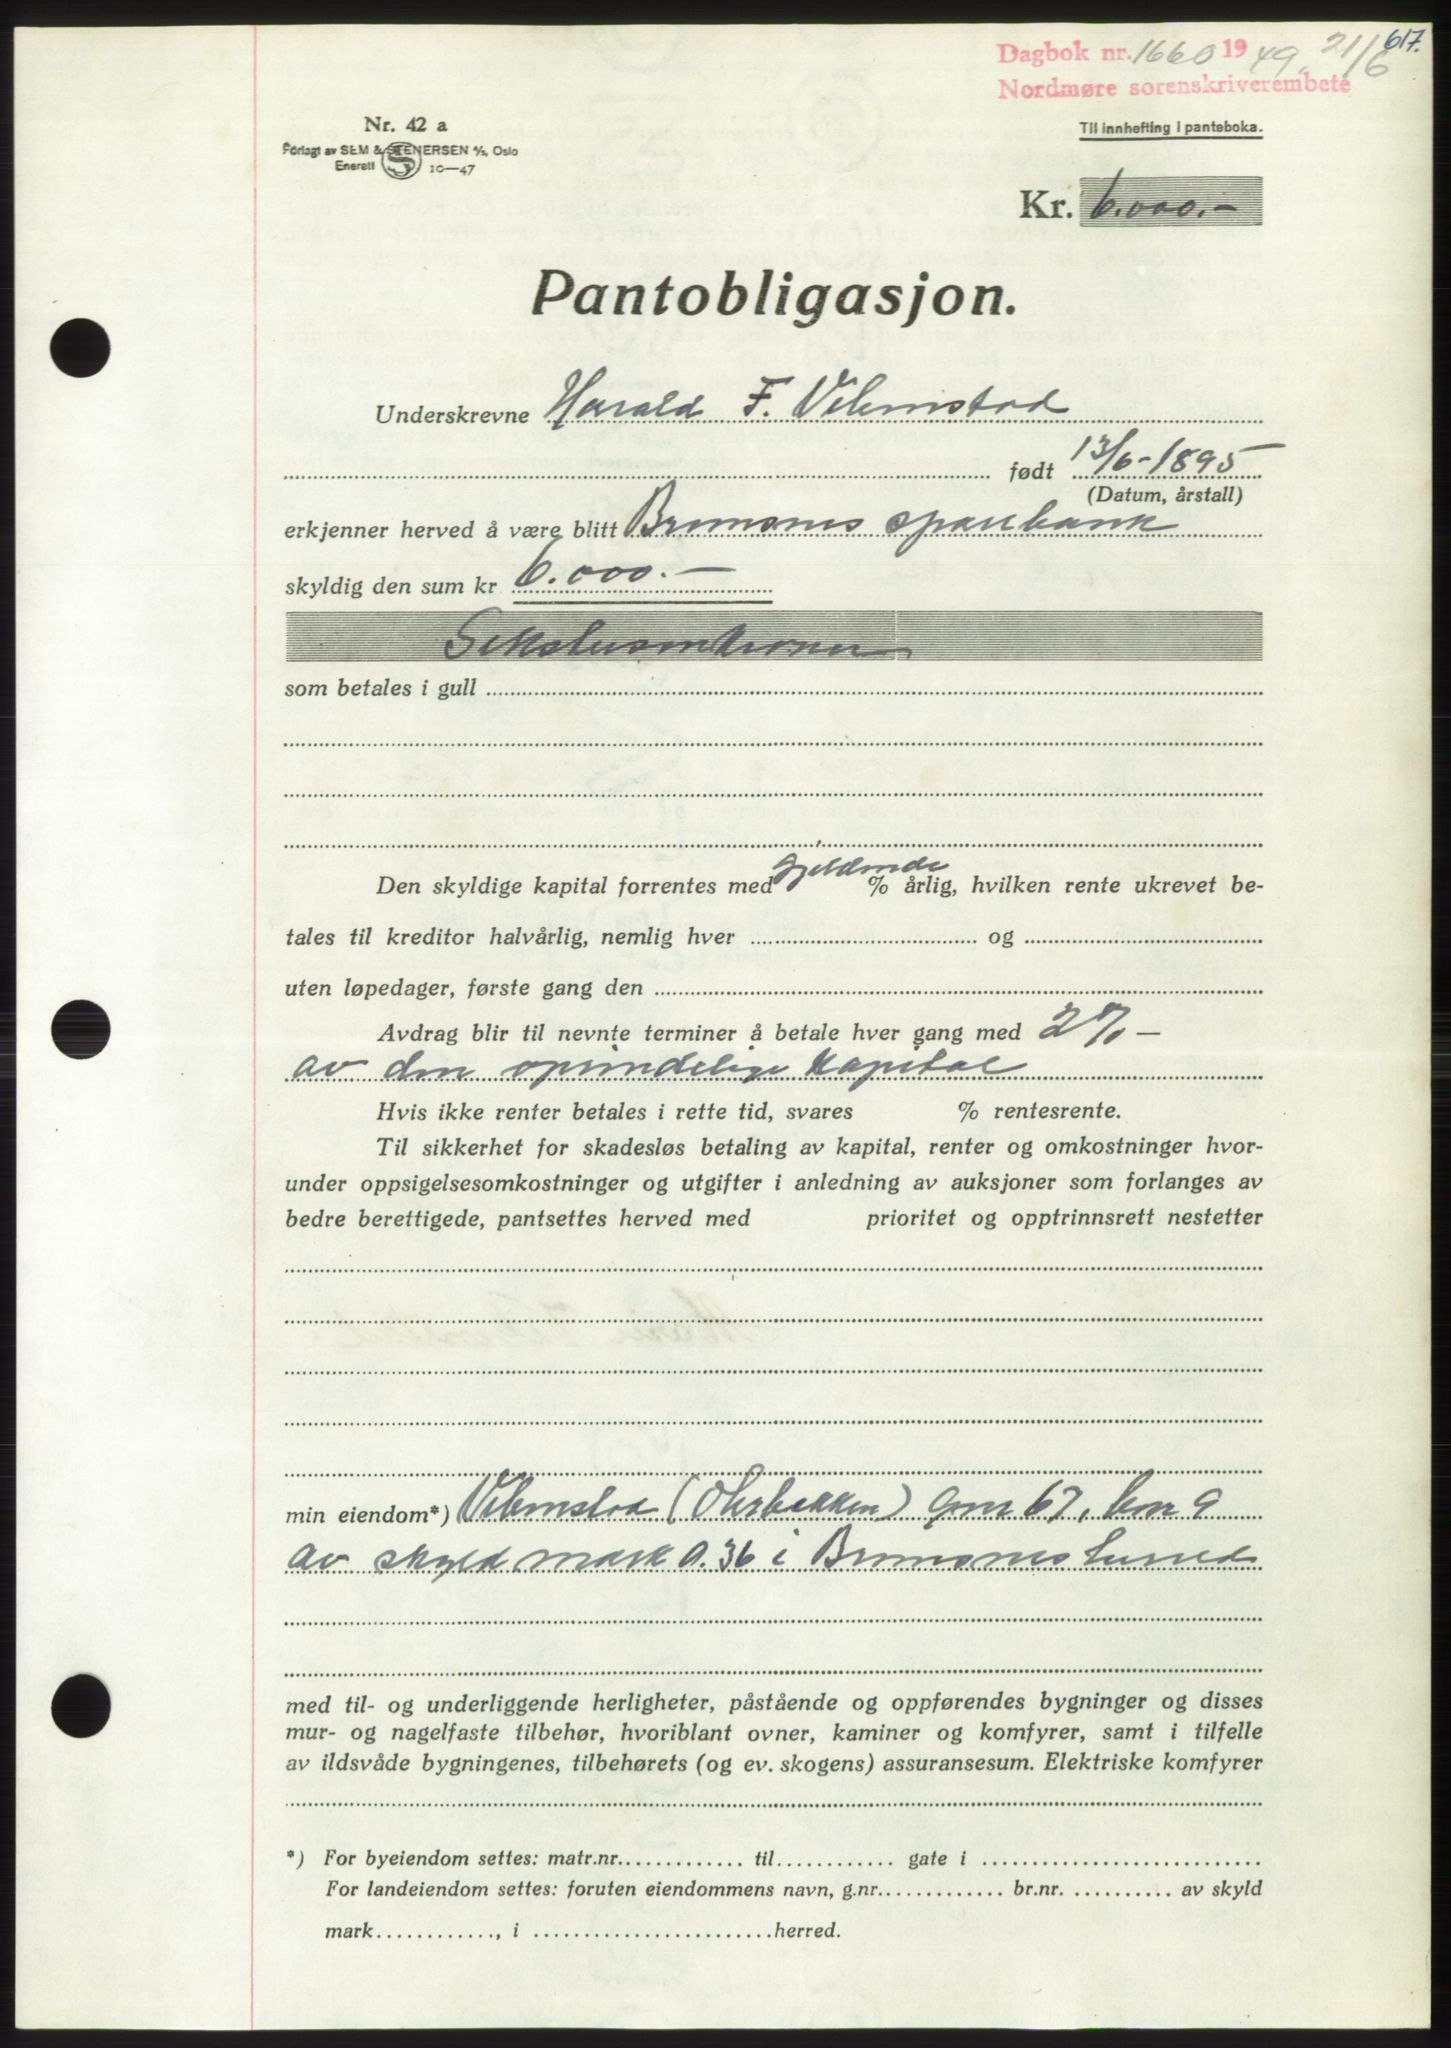 617.
Dagbok nr. 1660 1949 21/6
Nordmøre sorenskriverembete
Nr. 42 a
Til innhefting i panteboka.
Forlagt av SEM & STENERSEN A/S, Oslo
Enerett 10—47
Kr. 6.000.-
Pantobligasjon.
Underskrevne Harald F. Vebenstad
født 13/6-1895
(Datum, årstall)
erkjenner herved å være blitt Bremsnes sparebank
skyldig den sum kr 6.000.-
Sekstusenkroner
som betales i gull
Den skyldige kapital forrentes med gjeldende % årlig, hvilken rente ukrevet be-
tales til kreditor halvårlig, nemlig hver og
uten løpedager, første gang den
Avdrag blir til nevnte terminer å betale hver gang med 2% —
av den oprindelige kapital
Hvis ikke renter betales i rette tid, svares % rentesrente.
Til sikkerhet for skadesløs betaling av kapital, renter og omkostninger hvor-
under oppsigelsesomkostninger og utgifter i anledning av auksjoner som forlanges av
bedre berettigede, pantsettes herved med prioritet og opptrinnsrett nestetter
min eiendom*) Vebenstad (Okrbakken) gnr 67, bnr 9
av skyld mark 0.36 i Bremsnes herred
med til- og underliggende herligheter, påstående og oppførendes bygninger og disses
mur- og nagelfaste tilbehør, hvoriblant ovner, kaminer og komfyrer, samt i tilfelle
av ildsvåde bygningenes, tilbehørets (og ev. skogens) assuransesum. Elektriske komfyrer
*) For byeiendom settes: matr.nr. til gate i
For landeiendom settes: foruten eiendommens navn, g.nr. br.nr. av skyld
mark , i herred.